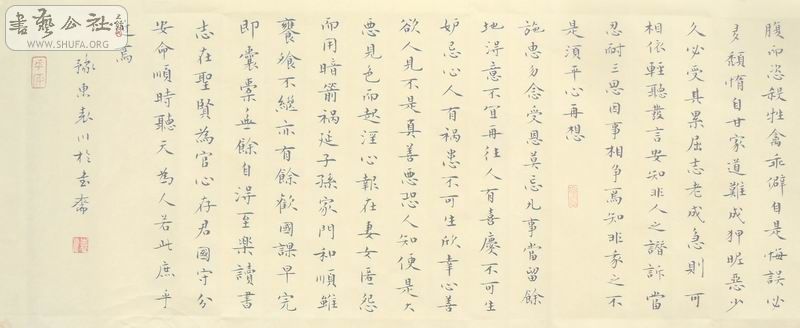 腹而恣殺牲禽乖僻自是悔誤必
多頹惰自甘家道難成狎昵惡少
久必受其累屈志老成急則可
相依輕聽發言安知非人之譖訴當
忍耐三思因事相爭焉知非我之不
是須平心再想
施惠勿念受恩莫忘凡事當留餘
地得意不宜再往人有喜慶不可生
妒忌心人有禍患不可生欣幸心善
欲人見不是真善惡恐人知便是大
惡見色而起淫心報在妻女匿怨
而用暗箭禍延子孫家門和順雖
饔飧不繼亦有餘歡國課早完
即囊橐無餘自得至樂讀書
志在聖賢為官心存君國守分
安命順時聽天為人若此庶乎
近焉
豫東袁川於書齋
書藝公社
WWW.SHUFA.ORG